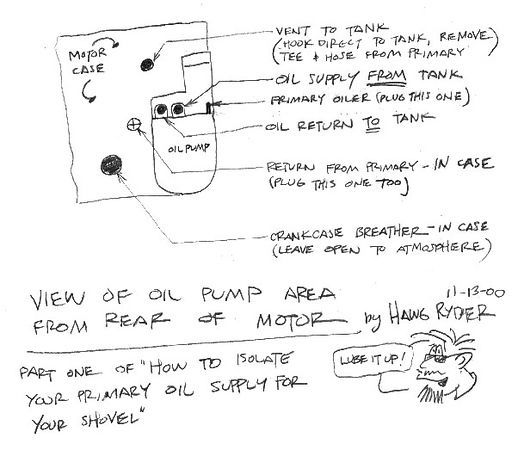 MOTOR
CASE
VENT TO TANK
(HOOK DIRECT TO TANK, REMOVE
TEE & HOSE FROM PRIMARY)
OIL SUPPLY FROM TANK
PRIMARY OILER (PLUG THIS ONE)
OIL RETURN TO TANK
OIL PUMP
RETURN FROM PRIMARY - IN CASE
(PLUG THIS ONE TOO)
CRANKCASE BREATHER - IN CASE
(LEAVE OPEN TO ATMOSPHERE)
VIEW OF OIL PUMP AREA
FROM REAR OF MOTOR
11-13-00
by HAWG RYDER
PART ONE OF "HOW TO ISOLATE
YOUR PRIMARY OIL SUPPLY FOR
YOUR SHOVEL"
LUBE IT UP!